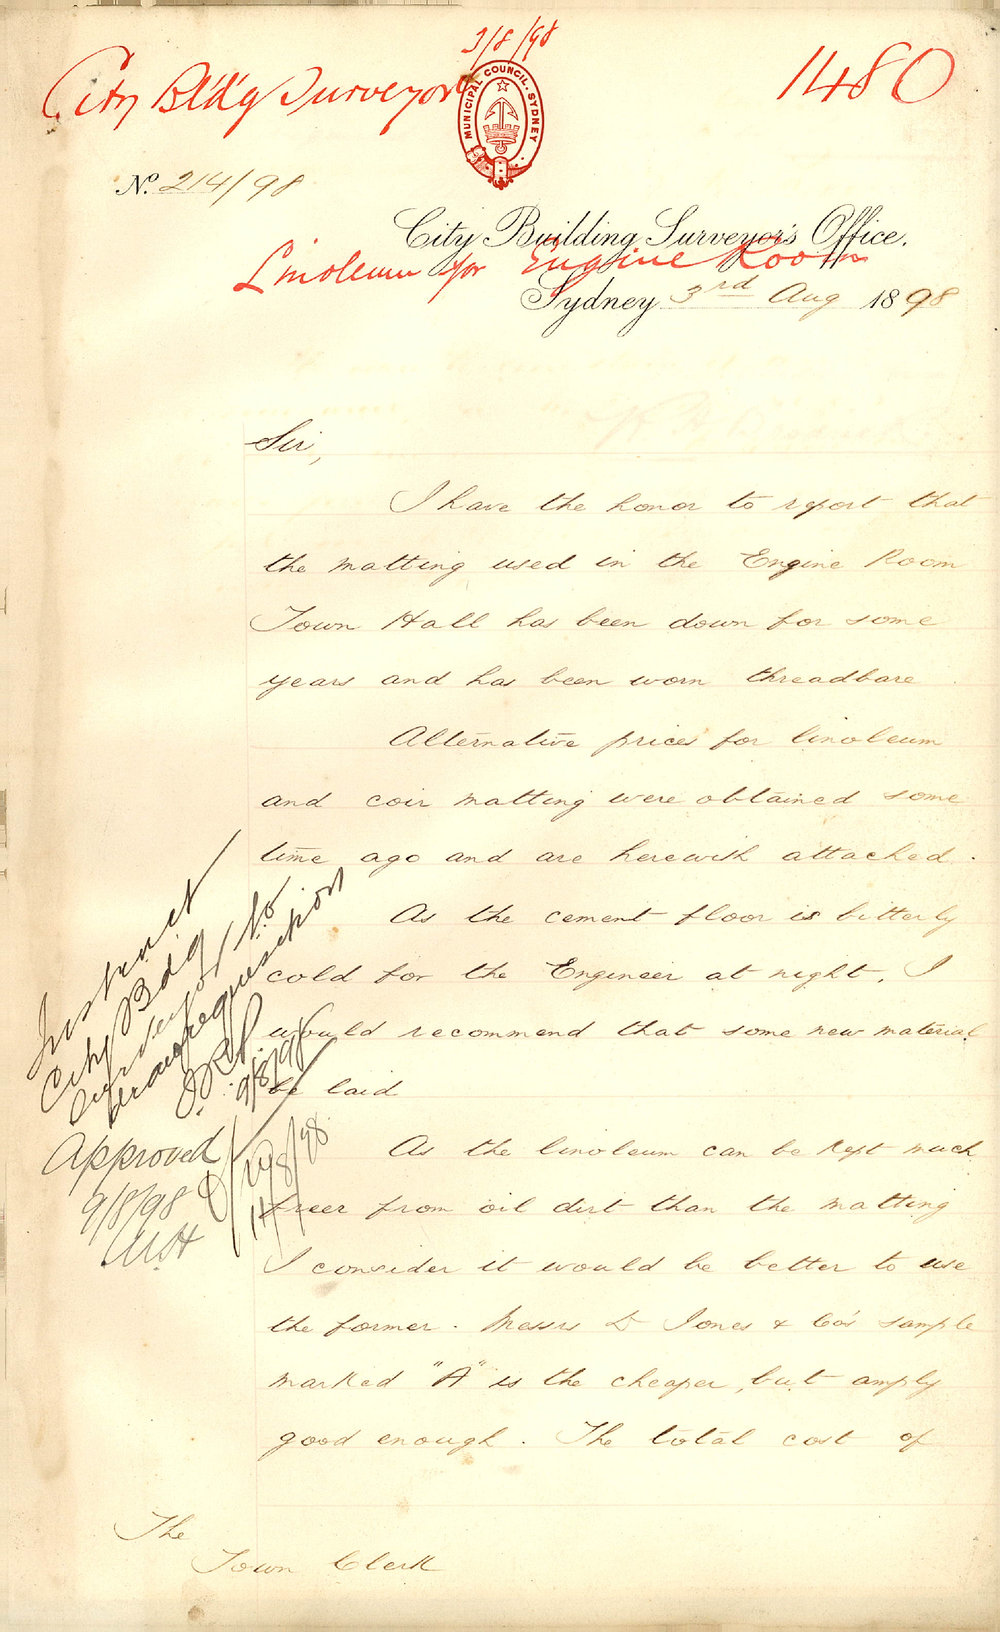 3/8/98
City Bldg Surveyor
1480
MUNICIPAL COUNCIL. SYDNEY
No. 214/98
City Building Surveyor's Office.
Linoleum for Engine Room
Sydney 3rd Aug 1898
Sir,
I have the honor to report that
the matting used in the Engine Room
Town Hall has been down for some
years and has been worn threadbare.
Alternative prices for linoleum
and coir matting were obtained some
time ago and are herewith attached.
As the cement floor is bitterly
cold for the Engineer at night, I
would recommend that some new material
be laid
As the linoleum can be kept much
freer from oil dirt than the matting
I consider it would be better to use
the former. Messrs D Jones & Co's sample
marked "A" is the cheaper, but amply
good enough. The total cost of
Instruct
City Bldg
Surveyor to
draw requisition
9/8/98
Approved
9/8/98
11/8/98
The
Town Clerk